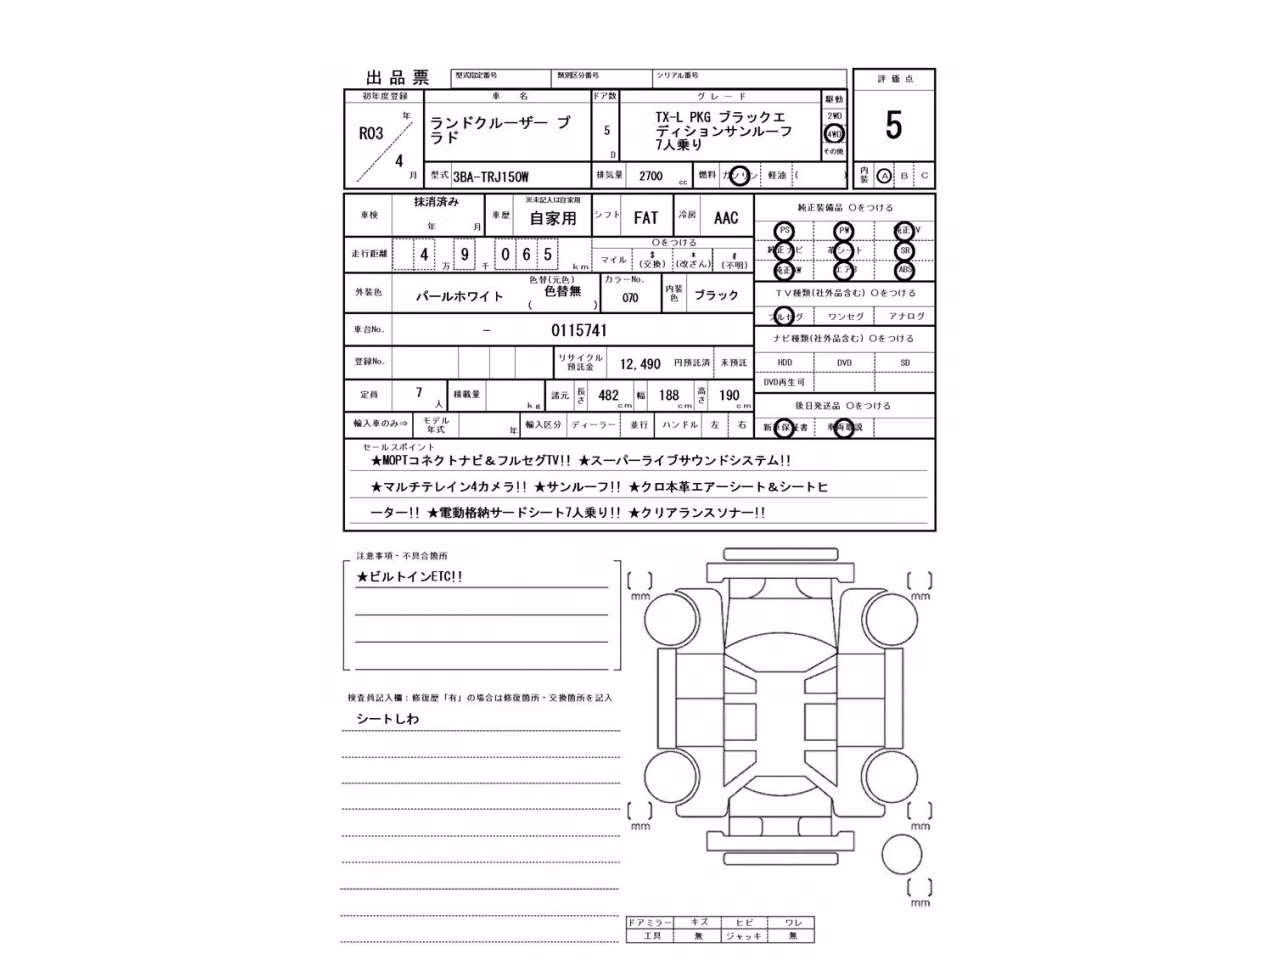 出品票 型式指定番号 類別区分番号 シリアル番号 評価点
初年度登録 車名 ドア数 グレード 駆動
R03年 4月 ランドクルーザー プ
ラド 5 D TX-L PKG ブラックエ
ディションサンルーフ
7人乗り 2WD 4WD その他 5
型式 3BA-TRJ150W 排気量 2700 cc 燃料 ガソリン 軽油 ( ) 内装 A B C
車検 抹消済み 年 月 車歴 ※未記入は自家用 自家用 シフト FAT 冷房 AAC 純正装備品 ○をつける
PS PW 純正TV
純正ナビ 革シート SR
純正AW エアB ABS
走行距離 4 万 9 千 0 6 5 km ○をつける
マイル $ (交換) * (改ざん) # (不明)
外装色 パールホワイト 色替(元色) 色替無 ( ) カラーNo. 070 内装色 ブラック TV種類(社外品含む) ○をつける
フルセグ ワンセグ アナログ
車台No. - 0115741 ナビ種類(社外品含む) ○をつける
登録No. リサイクル預託金 12,490 円預託済 未預託 HDD DVD SD
DVD再生可
定員 7 人 積載量 kg 諸元 長さ 482 cm 幅 188 cm 高さ 190 cm 後日発送品 ○をつける
輸入車のみ⇒ モデル年式 年 輸入区分 ディーラー 並行 ハンドル 左 右 新車保証書 車両取説
セールスポイント
★MOPTコネクトナビ＆フルセグTV!! ★スーパーライブサウンドシステム!!
★マルチテレイン4カメラ!! ★サンルーフ!! ★クロ本革エアーシート＆シートヒ
ーター!! ★電動格納サードシート7人乗り!! ★クリアランスソナー!!
注意事項・不具合箇所
★ビルトインETC!!
検査員記入欄：修復歴「有」の場合は修復箇所・交換箇所を記入
シートしわ
mm mm
mm mm
mm
ドアミラー キズ ヒビ ワレ
工具 無 ジャッキ 無